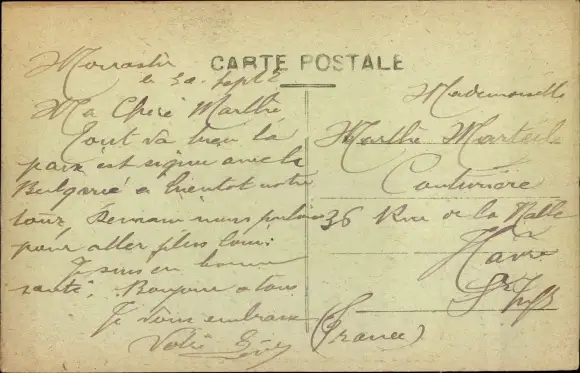 CARTE POSTALE
Monastir
le 30 Sept
Ma Cherè Marthe
Tout va bien la
paix est signée avec la
Bulgarie a bientot notre
tour. Demain nous partons
pour aller plus loin.
Je suis en bonne
santé. Bonjour a tous
Je vous embrasse
Votre
Mademoiselle
Marthe Marteil
Couturière
36 Rue de la Halle
Havre
(France)